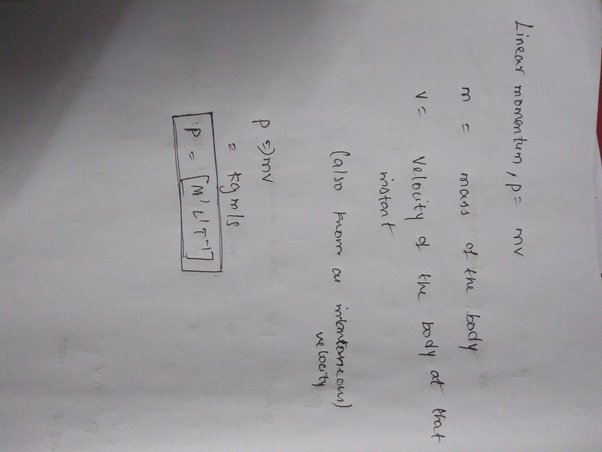 Linear momentum, p = mv
m = mass of the body
v = velocity of the body at that
instant
(also known as instantaneous)
velocity
p => mv
= kg m/s
P = [M¹ L¹ T⁻¹]